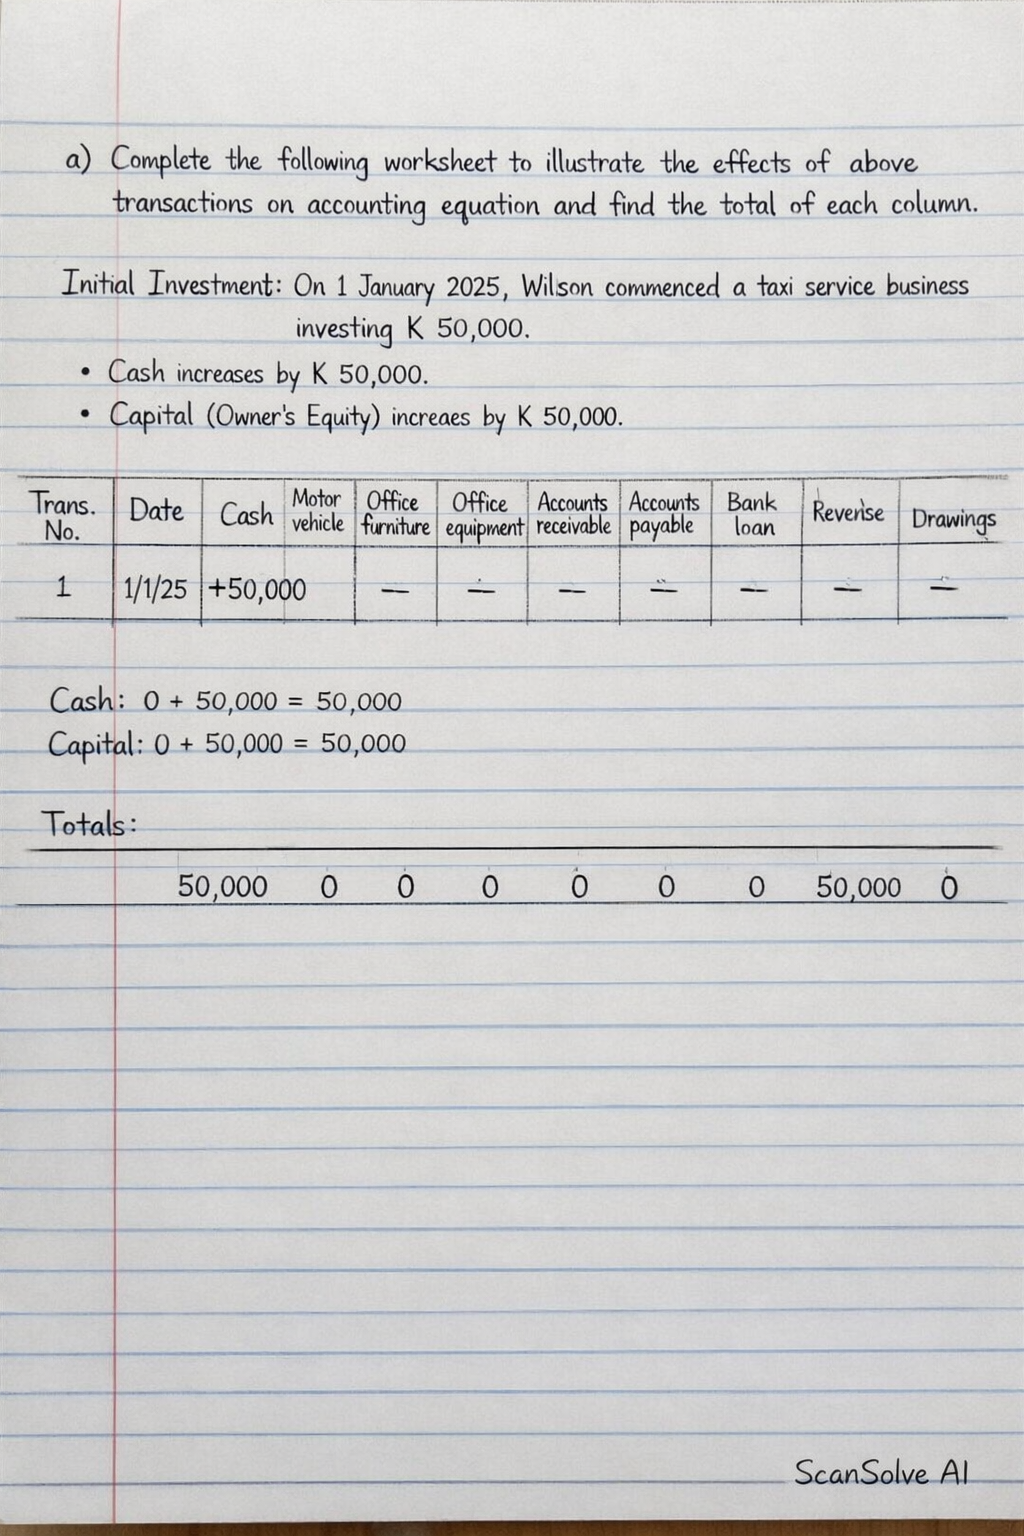 a) Complete the following worksheet to illustrate the effects of above
transactions on accounting equation and find the total of each column.
Initial Investment: On 1 January 2025, Wilson commenced a taxi service business
investing K 50,000.
• Cash increases by K 50,000.
• Capital (Owner's Equity) increaes by K 50,000.
Trans. No. Date Cash Motor vehicle Office furniture Office equipment Accounts receivable Accounts payable Bank loan Reverise Drawings
1 1/1/25 +50,000 — — — — — — —
Cash: 0 + 50,000 = 50,000
Capital: 0 + 50,000 = 50,000
Totals:
50,000 0 0 0 0 0 0 50,000 0
ScanSolve AI